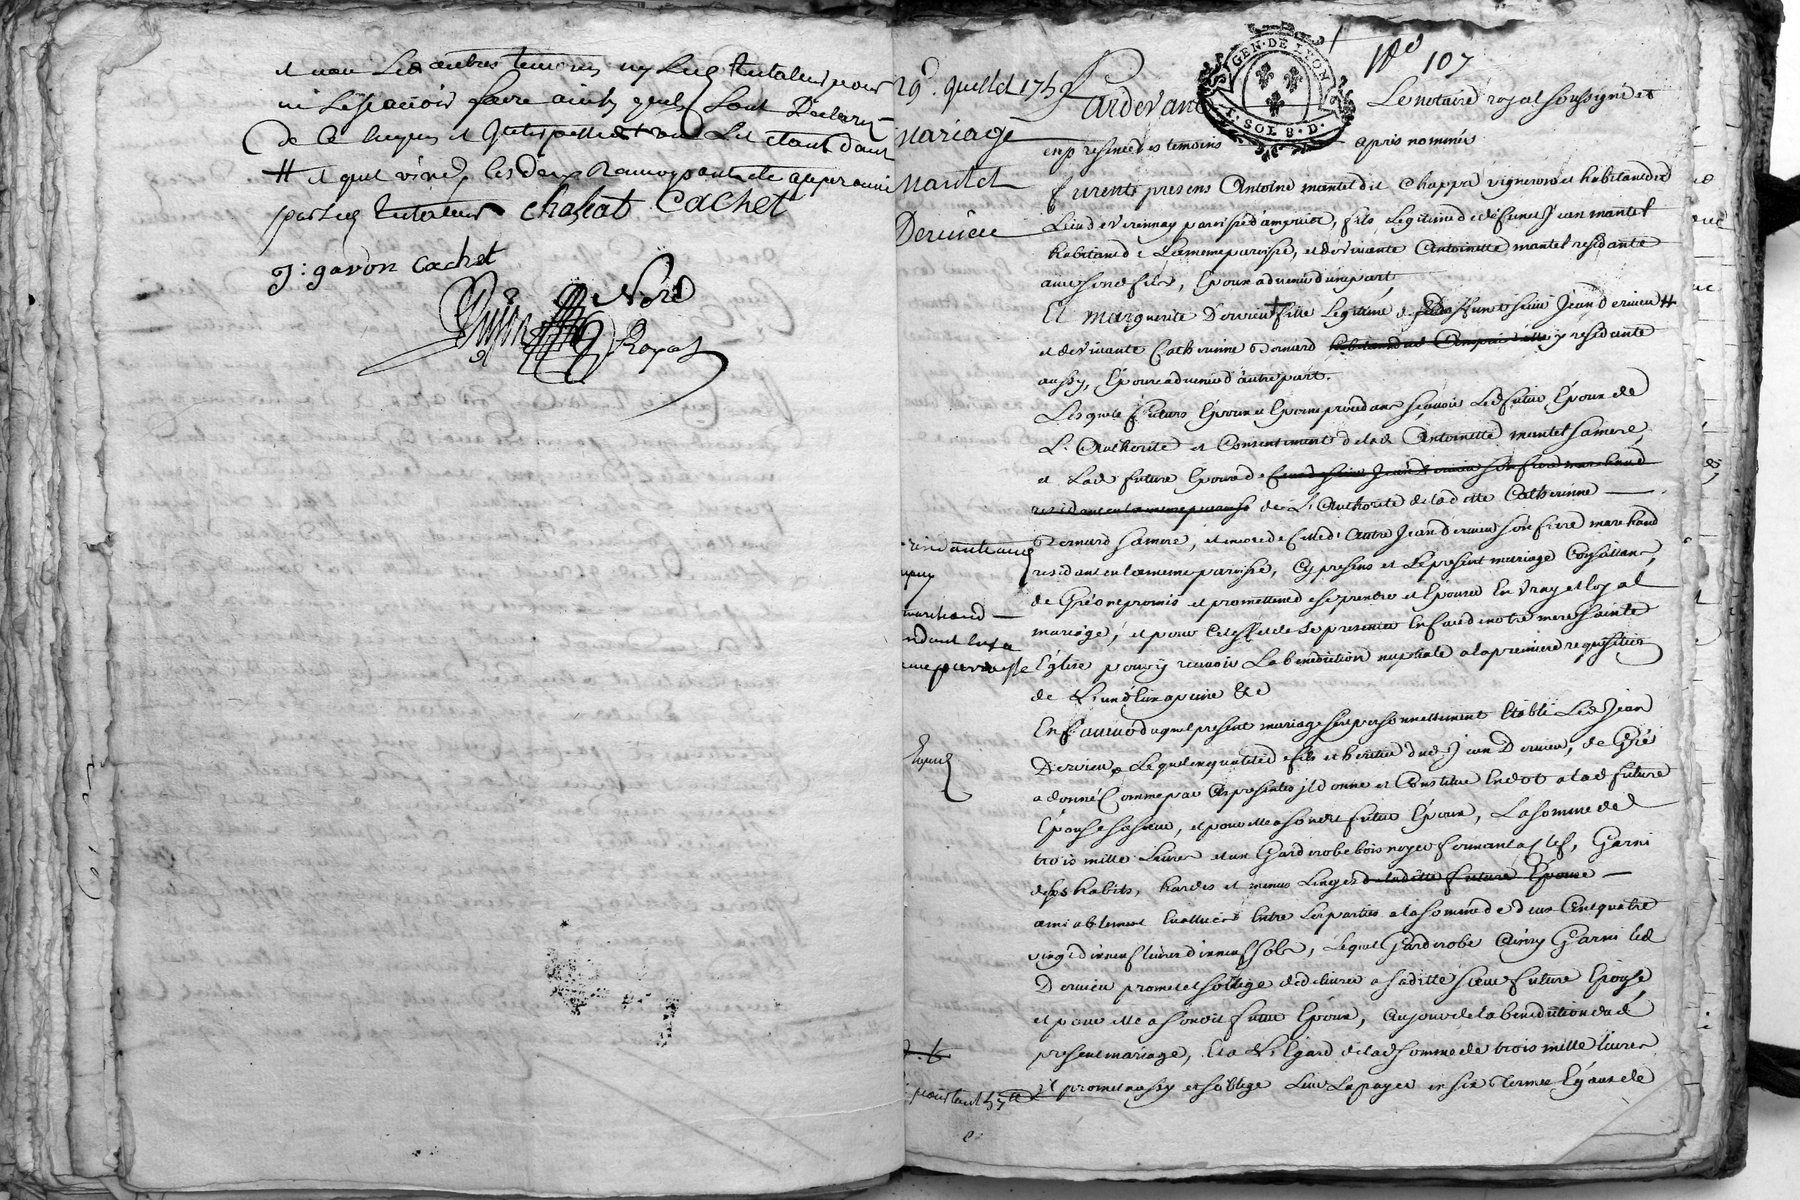 et non les autres temoins ny led. testateur pour
ne le scavoir faire ainsy quils l'ont Declaré
De ce enquis et
# et quel viendra, les deux Renvoy
par led. testateur chaleat Cachet
J: gavon Cachet
Nore
Royal
29e. Juillet 1759
Mariage
Mantel
Dervieu
No 107
GEN · DE LYON
SOL 8 · D ·
Pardevant Le notaire royal soussigné et
en presence des temoins apres nommés
furent presens Antoine mantel dit Chappa vigneron et habitant du
Lieu de Verennay paroisse d'ampuis, fils Legitime de defunct Jean mantel
habitant de La meme paroisse, et de vivante Antoinette mantel residante
avec son d. fils, Epoux advenir d'une part,
Et Marguerite Dervieu + fille Legitime de defunt sieur Jean dervieu #
et de vivante Catherinne Bernard y residante
aussy, Epouse advenir d'autre part.
Lesquels futurs Epoux et Epouse procedans scavoir Led. futur Epoux de
L'Authorité et Consentement de lad. Antoinette mantel sa mere,
et Lad. future Epouse de sieur Jean Dervieu son frere marchand
residant en la meme paroisse de L'Authorité de laditte Catherinne
Bernard sa mere, et encore de celle de autre Jean dervieu son frere marchand
residant en la meme paroisse, Cy presens et Le present mariage Conseillans,
de Gré ont promis et promettent de se prendre et Epouser En vray et loyal
mariage, et pour cet effet de se presenter En face de notre mere sainte
Eglise pour y recevoir La benediction nuptiale a la premiere requisition
de L'un d'eux a peine &c
En faveur duquel present mariage s'est personnellement Etabli Led. Jean
Dervieu Lequel en qualité de fils et heritier dud. Jean Dervieu, de Gré
a donné Comme par Ces presentes il donne et Constitue En dot a lad. future
Epouse sa sœur, et pour elle a son dit futur Epoux, La somme de
trois mille Livres et un Garderobe bois noyer fermant a clef, Garni
des habits, hardes et menus Linges de ladite future Epouse
amiablement Evallués Entre Les parties a la somme de deux Cent quatre
vingt dix neuf livres dix neuf sols, Lequel Garderobe Ainsy Garni led.
Dervieu promet et s'oblige de delivrer a saditte sœur future Epouse
et pour elle a son dit futur Epoux, au jour de la benediction dud.
present mariage, Et a L'Egard de lad. somme de trois mille livres
il promet aussy et s'oblige Luy La payer en six termes Egaux de
residante aud.
marchand
residant en la
meme paroisse